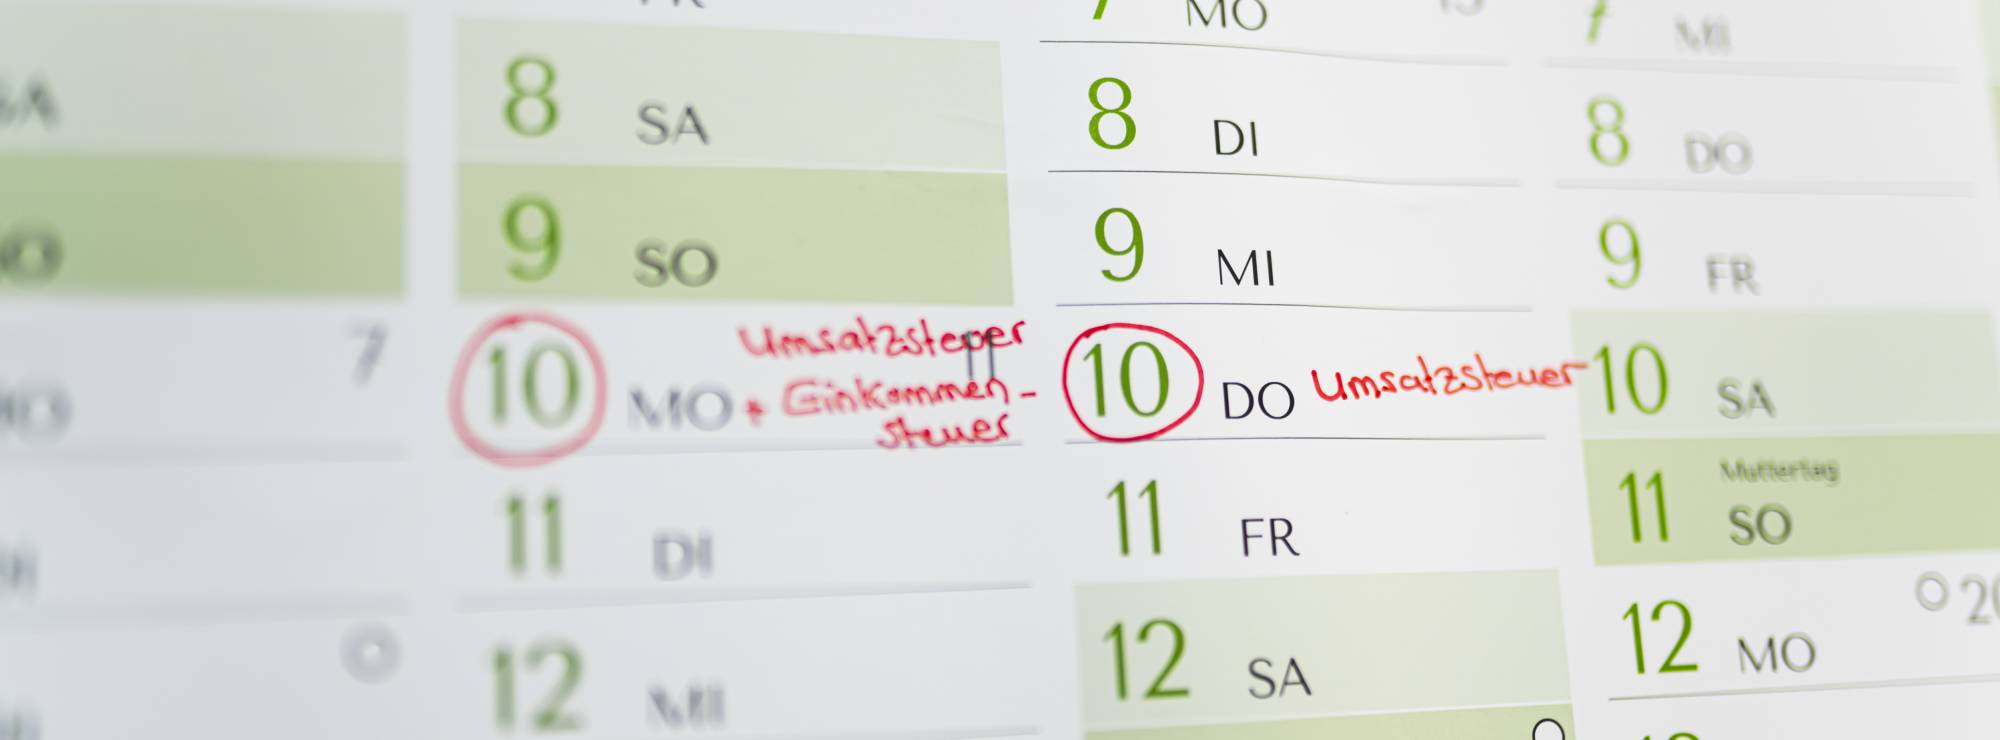 SA
SO
7
MO
8 SA
9 SO
10 MO
Umsatzsteuer
+ Einkommen-
steuer
11
11 DI
12 MI
7 MO 15
8 DI
9 MI
10 DO Umsatzsteuer
11 FR
12 SA
7 MI
8 DO
9 FR
10 SA
11 Muttertag
SO
12 MO